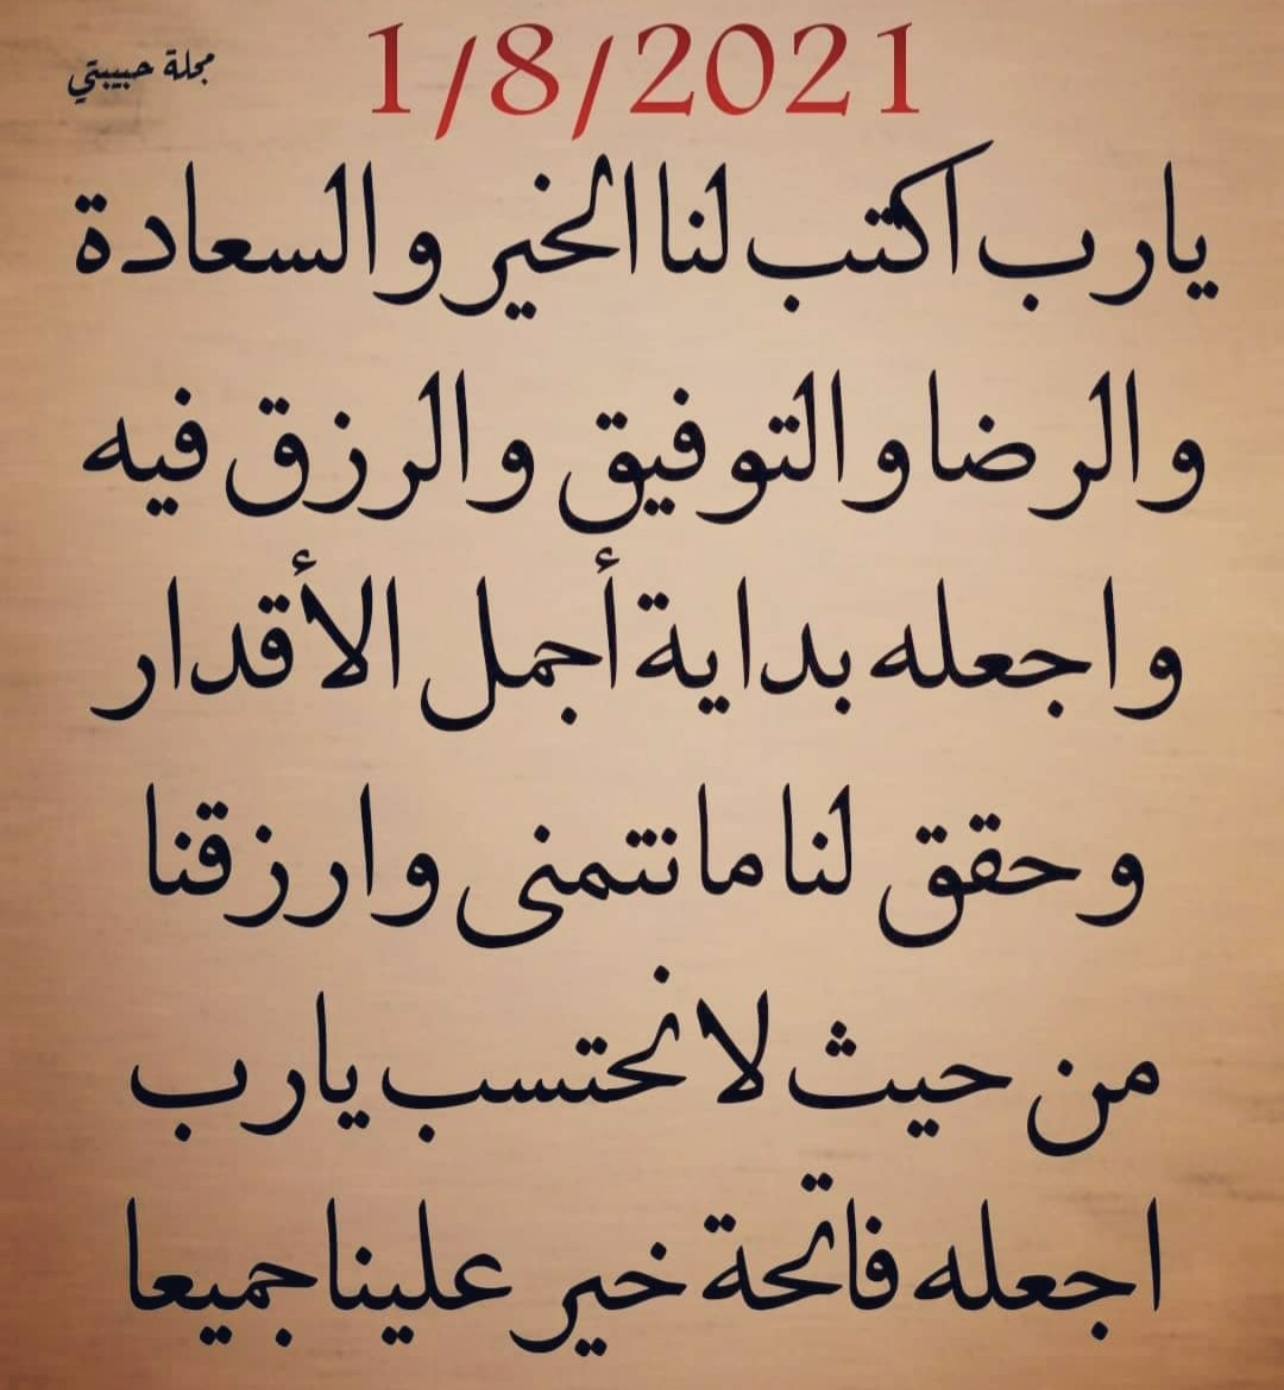 مجلة حبيبتي
1/8/2021
يارب اكتب لنا الخير والسعادة
والرضا والتوفيق والرزق فيه
واجعله بداية أجمل الأقدار
وحقق لنا ما نتمنى وارزقنا
من حيث لا نحتسب يارب
اجعله فاتحة خير علينا جميعا